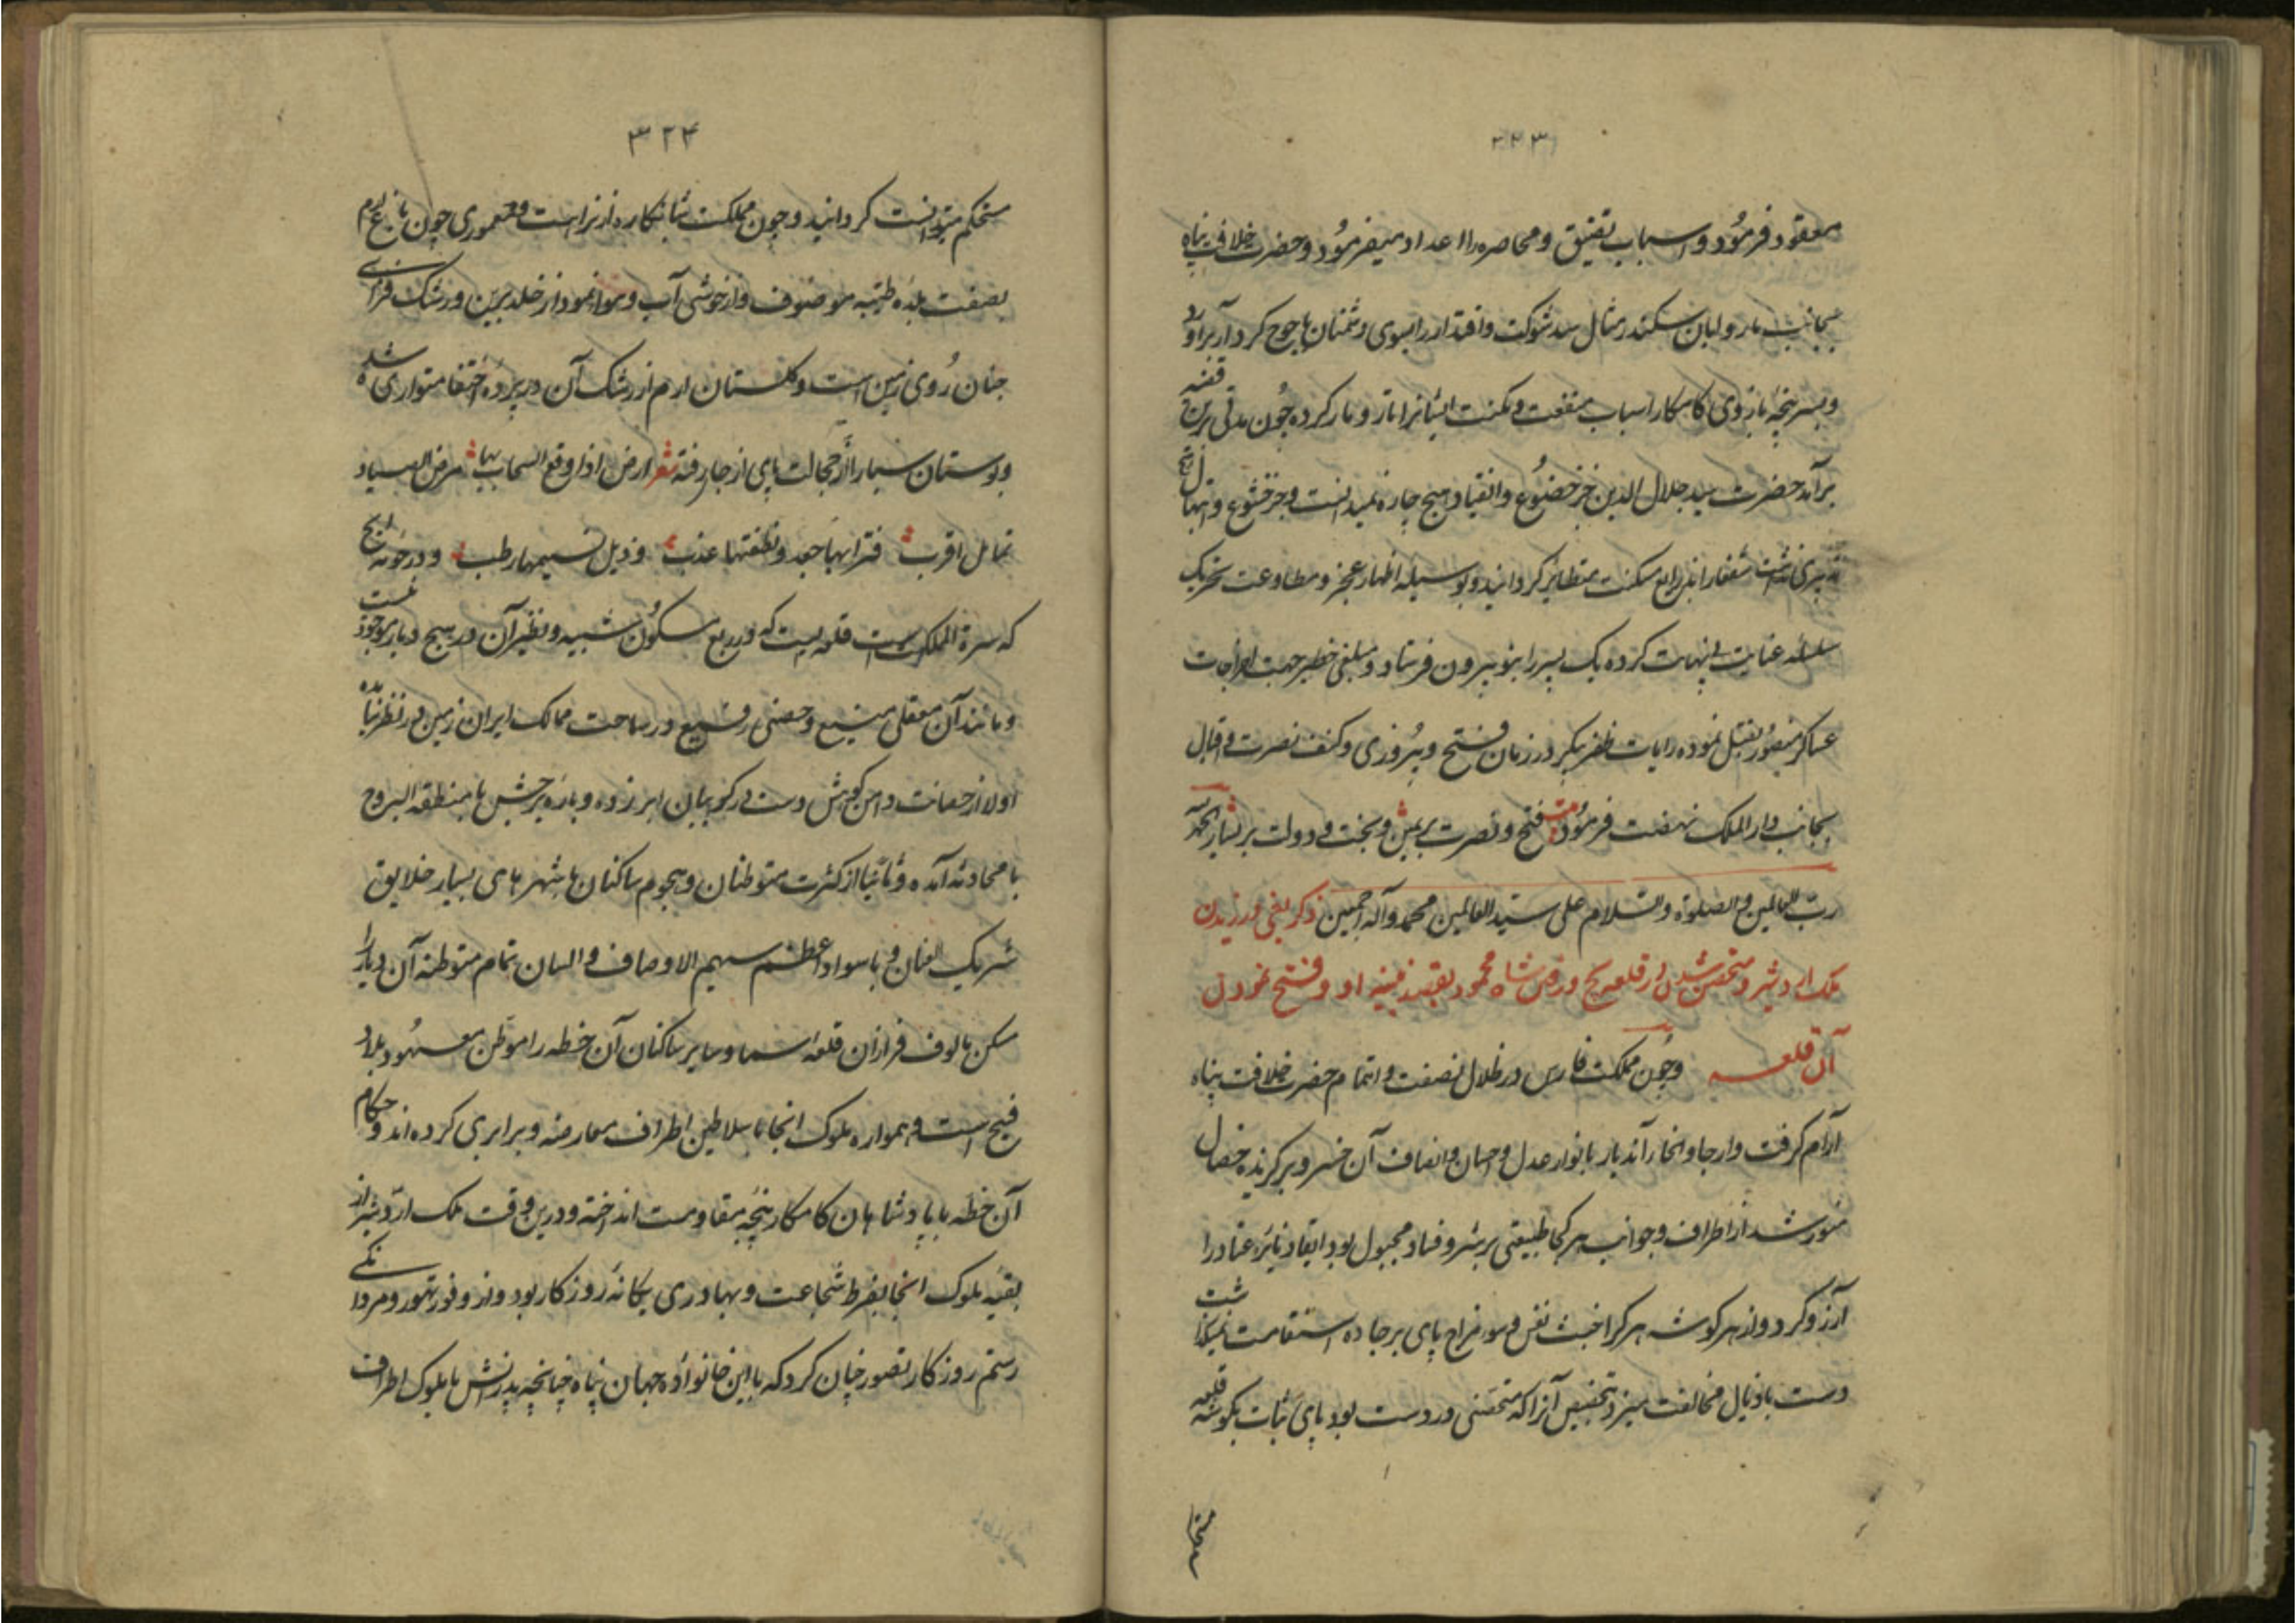 ۳۲۳
معقود فرمود و اسباب تضییق و محاصره را اعداد میفرمود و حضرت خلافت پناه
بجانب بارو لبان سکندر مثال سد شوکت و اقتدار را بسوی دشمنان یاجوج کردار برآورد
و بسرپنجهٔ بازوی کامکار اسباب منفعت و مکنت ایشانرا تار و مار کرده چون مدتی برین قضیه
برآمد حضرت سید جلال الدین جز خضوع و انقیاد هیچ چاره نمیدانست و جز خشوع و ابتهال هیچ
تدبیری نداشت شفعا را بذرایع مسکنت متظاهر کردانید و بوسیله اظهار عجز و مطاوعت تحریک
سلسلهٔ عنایت بینهایت کرده یک پسر را بنوا بیرون فرستاد و مبلغی خطیر جهت اخراجات
عساکر منصور تقبل نموده رایات ظفر پیکر در زمان فتح و پیروزی و کنف نصرت و اقبال
بجانب دار الملک نهضت فرمود فتح و نصرت بر یمین و بخت و دولت بر یسار الحمد لله
رب العالمین و الصلوة و السلام علی سید العالمین محمد و آله اجمعین ذکر یغی ورزیدن
ملک اردشیر و متحصن شدن در قلعه یج و رفتن شاه محمود بقصد او و فتح نمودن
آن قلعه وچون مملکت فارس در ظلال نصفت و اهتمام حضرت خلافت پناه
آرام کرفت و ارجا و انحاء آندیار بانوار عدل و احسان و انصاف آن خسرو برکزیده خصال
منور شد از اطراف و جوانب هر کجا طبیعتی بر شر و فساد مجبول بود ایقاد نایرهٔ عناد را
آرزو کرد و از هر کوشه هر کرا خبث نفس و سوء مزاج پای بر جاده استقامت نمیگذاشت
دست باذیال مخالفت میزد بتخصیص آنرا که متحصنی در دست بود پای ثبات بکوشه قلعه
۳۲۴
مستحکم میتوانست کردانید و چون مملکت شبانکاره از نزاهت و معموری چون باغ ارم
بصفت بلدهٔ طیبه موصوف و از خوشی آب و هوا نمودار خلد برین و رشک فزای
جنان روی زمین است و کلستان ارم از رشک آن در پردهٔ اختفا متواری شده
و بوستان سبا را از خجالت پای از جا رفته شعر ارض اذا وقع السحاب بها مرض الصبا
تمایل اقرب فترابها جعد و نطفتها عذب و ذیل نسیمها رطب و در حومه ایج
که سرة المملکت است قلعه ایست که در ربع مسکون شبیه و نظیر آن در هیچ دیار موجود نیست
و مانند آن معقلی منیع و حصنی رفیع در ساحت ممالک ایران زمین در نظر نیامده
اولا از حصانت دامن کوهش دست در کریبان ابر زده و باره برجش با منطقه البروج
با محاذته آمده و ثانیا از کثرت متوطنان و هجوم ساکنان با شهرهای بسیار خلایق
شریک العنان و با سواد اعظم سهیم الاوصاف و السان تمام متوطنه آن دیار را
مسکن مالوف فراز آن قلعه آسما و سایر ساکنان آن خطه را موطن معهود بلاد
فیح است و همواره ملوک آنجا با سلاطین اطراف معارضه و برابری کرده اند و حکام
آن خطه با پادشاهان کامکار پنجهٔ مقاومت انداخته و درین وقت ملک اردشیر از
بقیه ملوک آنجا بفرط شجاعت و بهادری یکانهٔ روزکار بود و از وفور تهور و مردانکی
رستم روزکار تصور چنان کرد که با این خانوادهٔ جهان پناه چنانچه پدرانش با ملوک اطراف